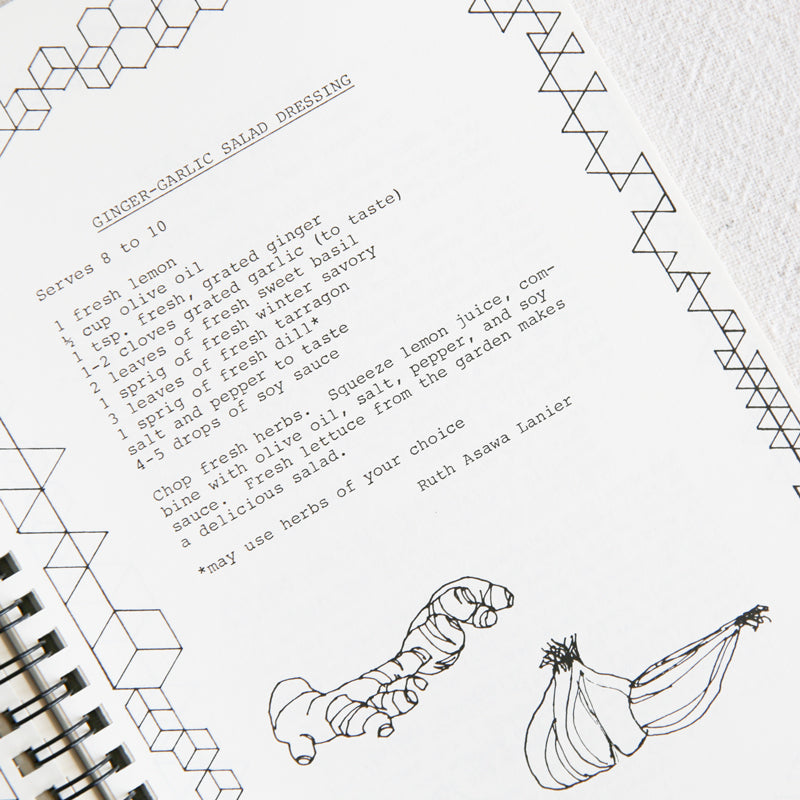 GINGER-GARLIC SALAD DRESSING
Serves 8 to 10
1 fresh lemon
½ cup olive oil
1 tsp. fresh, grated ginger
1-2 cloves grated garlic (to taste)
2 leaves of fresh sweet basil
1 sprig of fresh winter savory
3 leaves of fresh tarragon
1 sprig of fresh dill*
salt and pepper to taste
4-5 drops of soy sauce
Chop fresh herbs. Squeeze lemon juice, com-
bine with olive oil, salt, pepper, and soy
sauce. Fresh lettuce from the garden makes
a delicious salad.
*may use herbs of your choice
Ruth Asawa Lanier